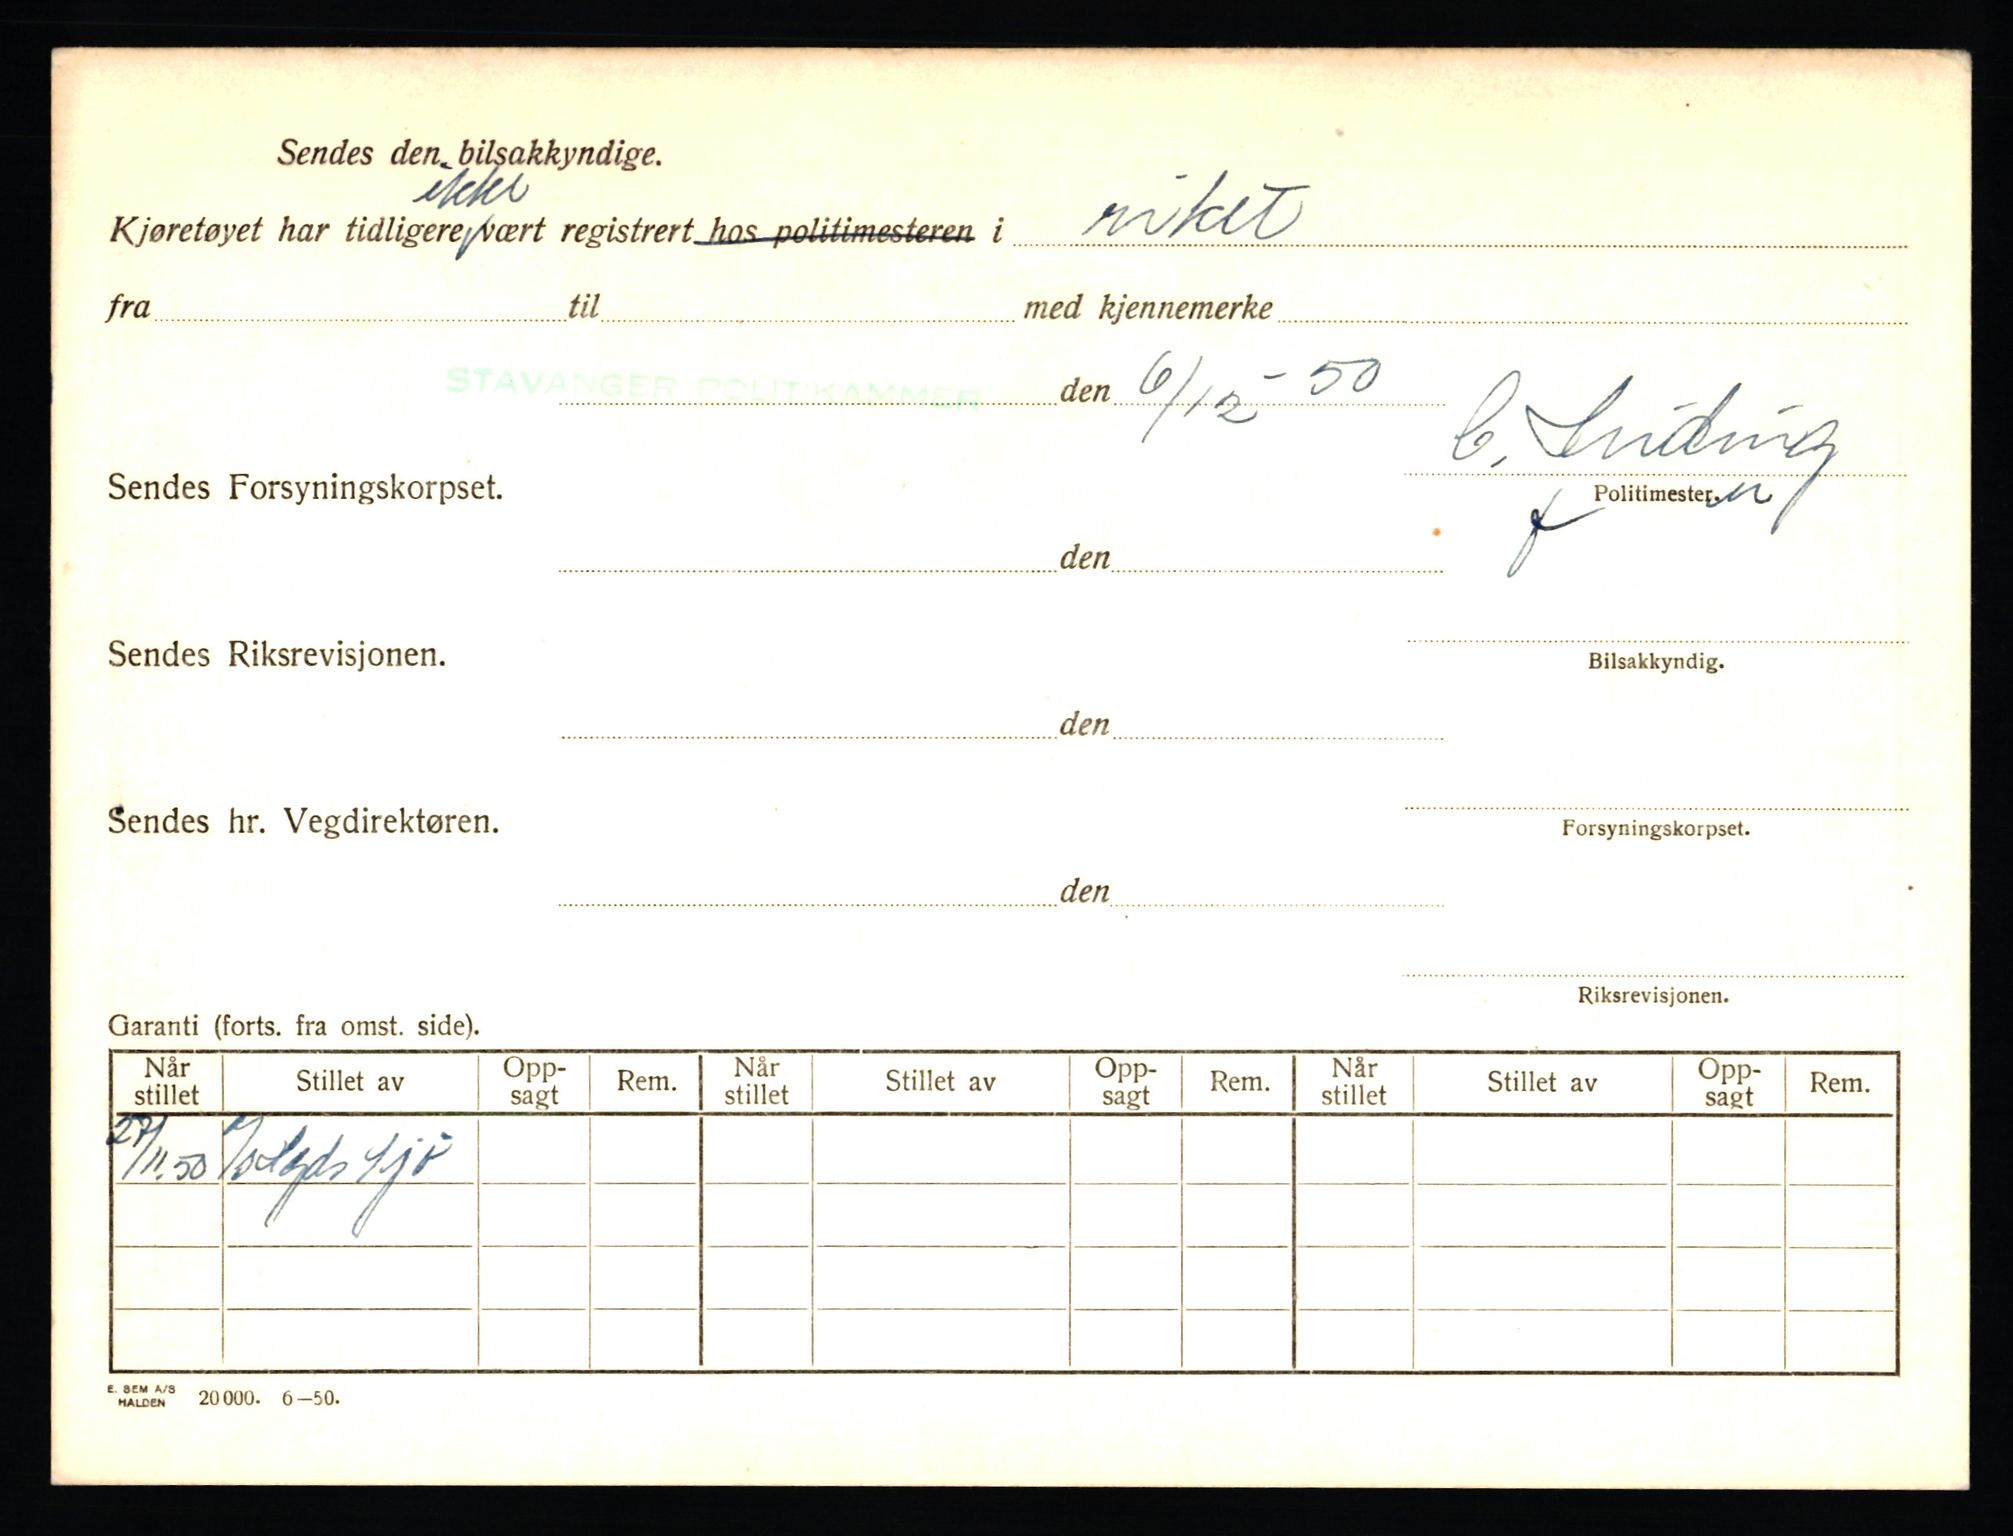 Sendes den bilsakkyndige.
ikke
Kjøretøyet har tidligere vært registrert hos politimesteren i riket
fra til med kjennemerke
STAVANGER POLITIKAMMER den 6/12-50
Sendes Forsyningskorpset.
Politimester.
f
den
Sendes Riksrevisjonen.
Bilsakkyndig.
den
Sendes hr. Vegdirektøren.
Forsyningskorpset.
den
Riksrevisjonen.
Garanti (forts. fra omst. side).
Når stillet Stillet av Opp-sagt Rem. Når stillet Stillet av Opp-sagt Rem. Når stillet Stillet av Opp-sagt Rem.
27/11.50
E. SEM A/S
HALDEN 20000. 6—50.